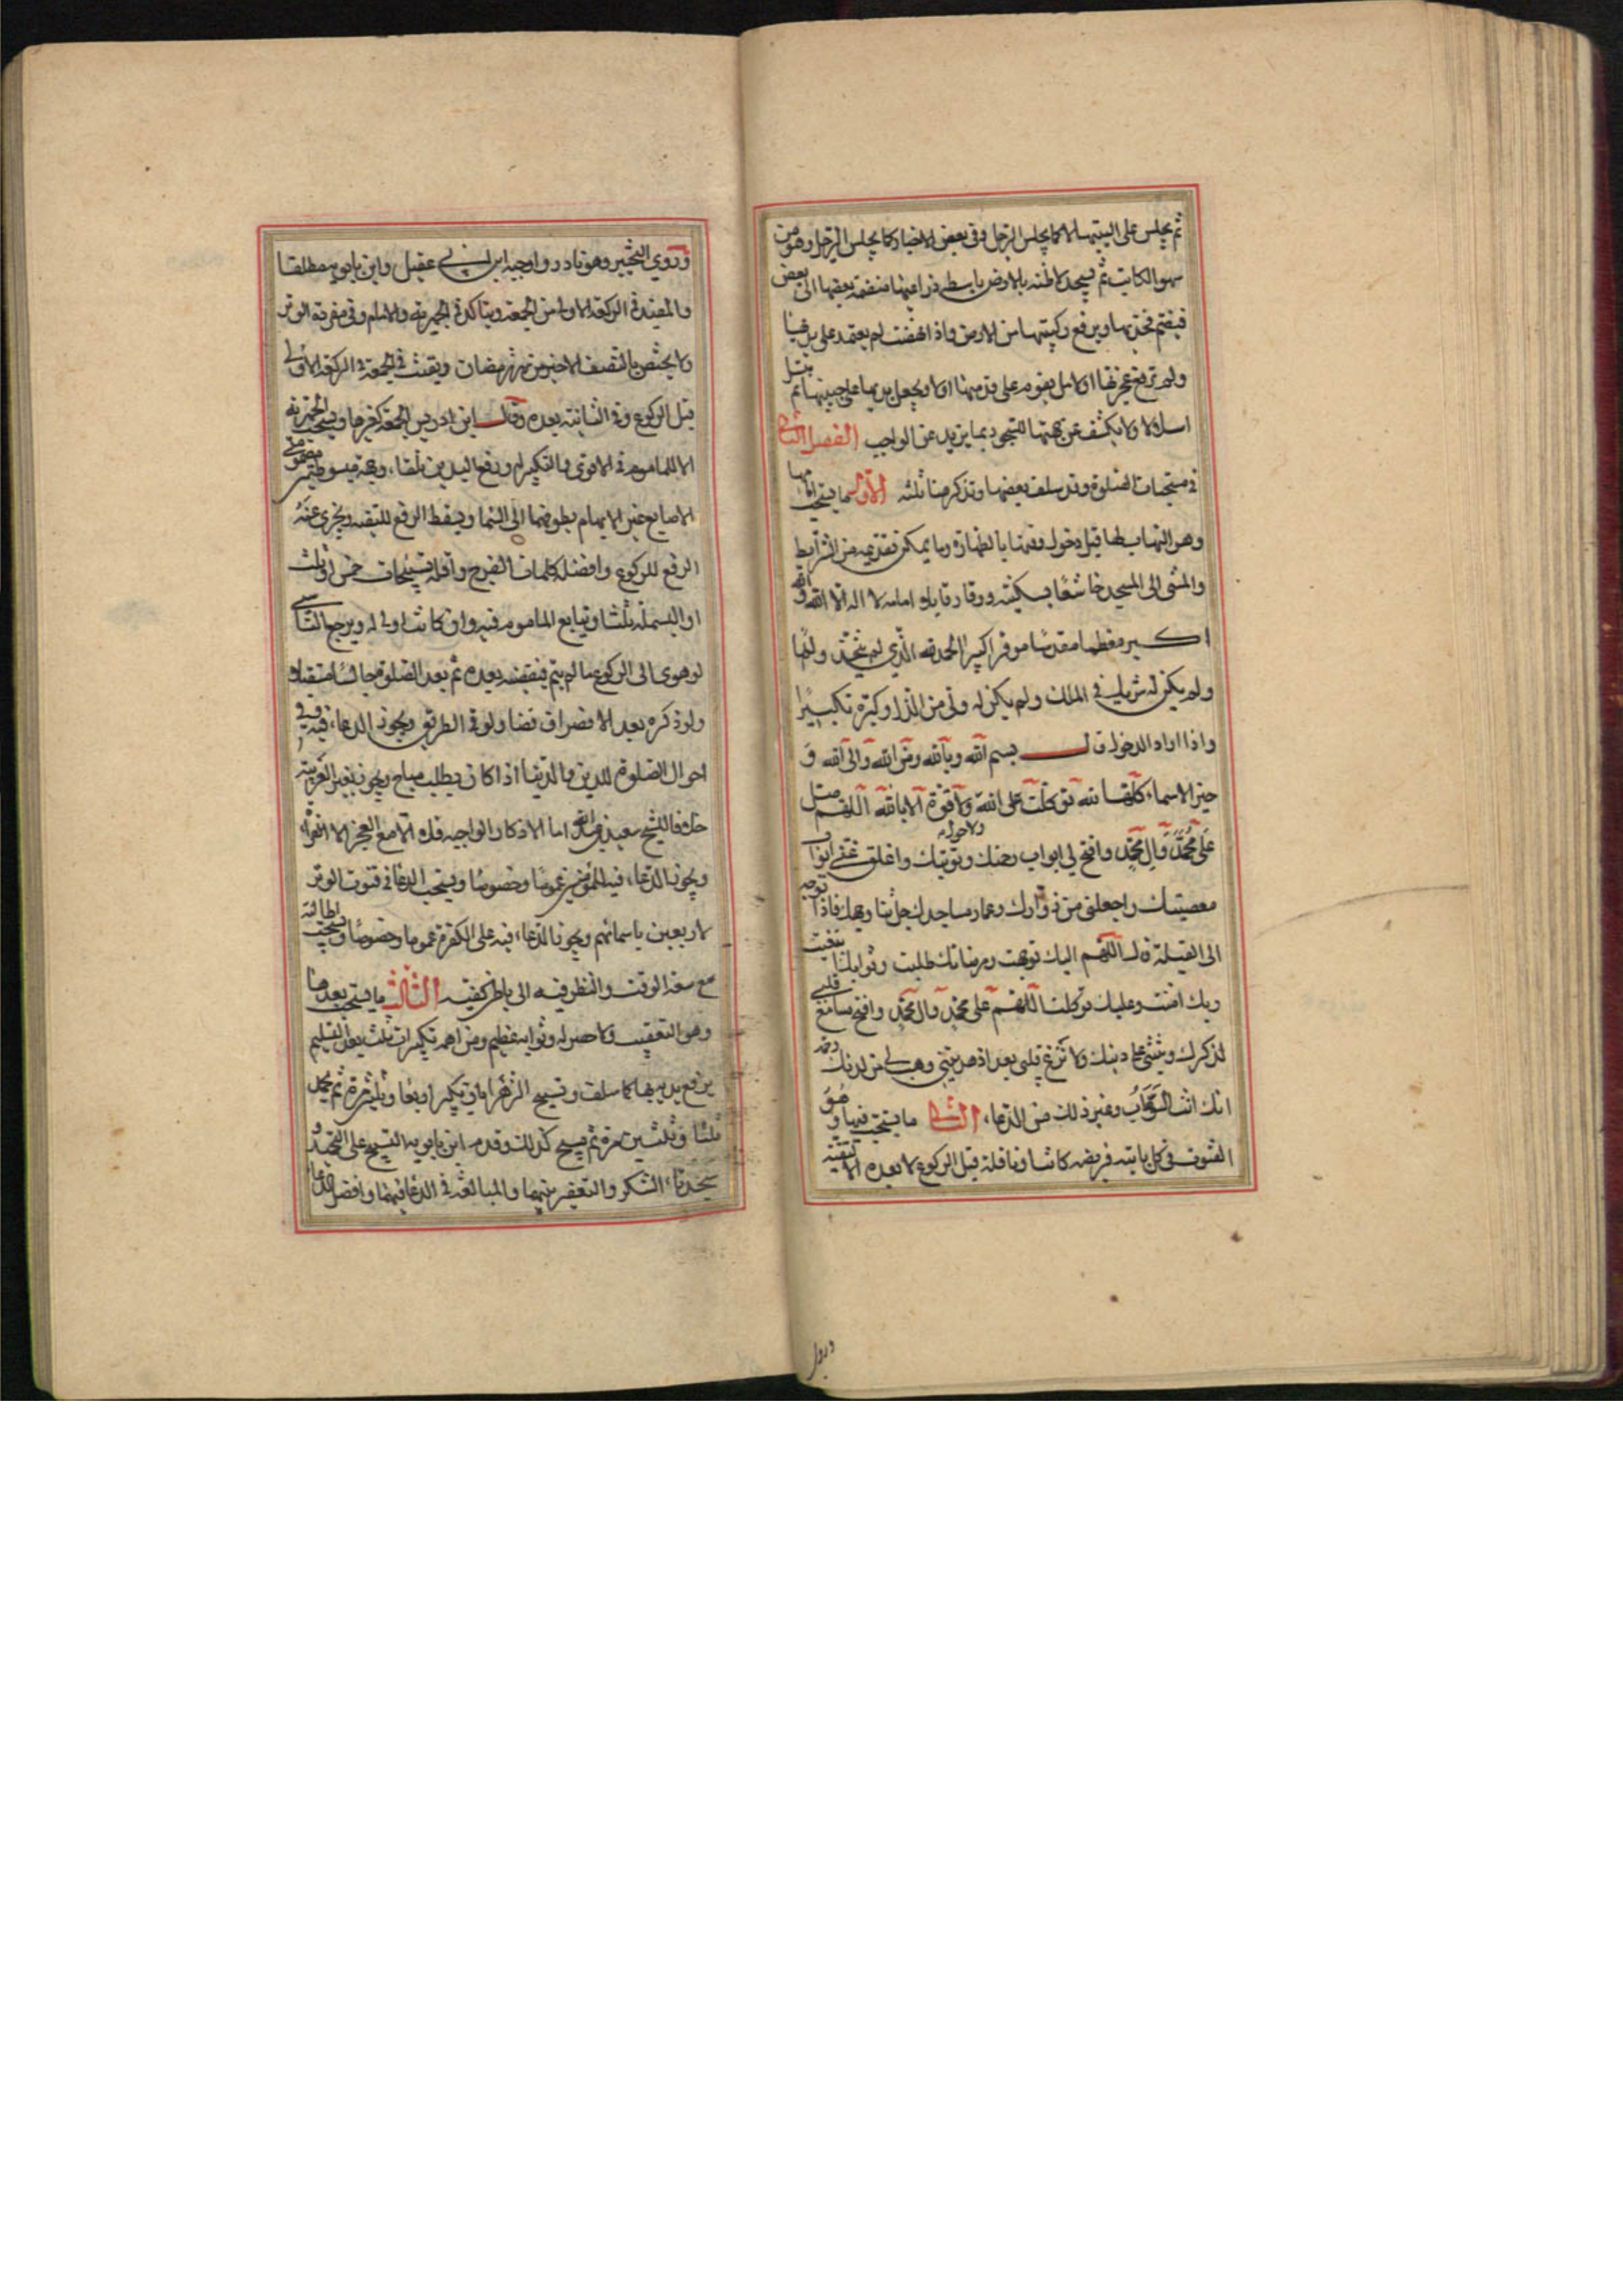 ثم يجلس على اليتيها لا كما يجلس الرجل وفى بعض الاخبار كما يجلس الرجل وهو من
سهو الكاتب ثم تسجد لاطئة بالارض باسطة ذراعيها منضمة بعضها الى بعض
فيضم فخذيها ويرفع ركبتيها من الارض واذا نهضت لم يعتمد على يديها
ولم ترفع عجزتها اولا بل يقوم على قدميها اولا ويجعل يديها على جنبيها ثم
اسلالا ولا يكشف عن جبهتها للسجود بما يزيد عن الواجب الفصل الثانى
فى مستحبات الصلوة وقد سلف بعضها ونذكر هنا ثلثه الاول ما يستحب امامها
وهو التهاب لها قبل دخول وقتها بالطهارة وما يمكن تقديمه من الشرايط
والمشى الى المسجد خاشعا بسكينه ووقار قايلا امامه لا اله الا الله والله
اكبر معظما مقدسا موقرا كبيرا الحمد لله الذي لم يتخذ ولدا
ولم يكن له شريك فى الملك ولم يكن له ولى من الذل وكبره تكبيرا
واذا اراد الدخول قال بسم الله وبالله ومن الله والى الله و
خير الاسماء كلها لله توكلت على الله ولا حول ولا قوة الا بالله اللهم صل
على محمد وال محمد وافتح لى ابواب رحمتك وتوبتك واغلق عنى ابواب
معصيتك واجعلنى من زوارك وعمار مساجدك جل ثنا وجهك فاذا توجه
الى القبلة قال اللهم اليك توجهت ومرضاتك طلبت وثوابك ابتغيت
وبك امنت وعليك توكلت اللهم صل على محمد وال محمد وافتح مسامع قلبى
لذكرك وثبتنى على دينك ولا تزغ قلبى بعد اذ هديتنى وهب لى من لدنك رحمة
انك انت الوهاب وغير ذلك من الدعاء الثانى ما يستحب فيها وهو
القنوت فى كل ثانيه فريضه كانت او نافلة قبل الركوع لا بعده الا لتقية
وروي التخيير وهو نادر واوجبه ابن ابى عقيل وابن بابويه مطلقا
والمفيد فى الركعة الاولى من الجمعة ويتاكد فى الجهرية والامام وفى مفردة الوتر
ولا يختص بالنصف الاخير من شهر رمضان ويقنت فى الجمعة فى الركعة الاولى
قبل الركوع وفى الثانية بعده وقال ابن ادريس الجمعة كغيرها ويستحب الجهر به
الا للماموم فى الاقوى والتكبير له ورفع اليدين تلقاء وجهه مبسوطتين مضمومتى
الاصابع غير الابهام بطونهما الى السما ويسقط الرفع للتقيه ويجزى عنه
الرفع للركوع وافضله كلمات الفرج واقله تسبيحات خمس او ثلث
او البسملة ثلثا ويتابع الماموم فيه وان كانت اولى له ويرجع الناسى
لو هوى الى الركوع ما لم يتم فيقضيه بعده ثم بعد الصلوة جالسا مستقبلا
ولو ذكره بعد الانصراف قضا ولو فى الطريق ويجوز الدعاء فيه وفى
احوال الصلوة للدين والدنيا اذا كان يطلب مباح ويجوز بغير العربية
خلافا للشيخ سعيد رحمه الله اما الاذكار الواجبه فلا الا مع العجز الا القراة
ويجوز الدعاء فيه للمؤمنين عموما وخصوصا ويستحب الدعا فى قنوت الوتر
لاربعين باسمائهم ويجوز الدعاء فيه على الكفرة عموما وخصوصا ويستحب اطالته
مع سعة الوقت والنظر فيه الى باطن كفيه الثالث ما يستحب بعدها
وهو التعقيب ولا حصر له وثوابه عظيم ومن اهمه تكبيرات ثلث بعد التسليم
يرفع بديه بها كما سلف وتسبيح الزهرا باى تكبير اربعا وثلثين مرة ثم يحمد
ثلثا وثلثين مرة ثم يسبح كذلك وقدم ابن بابويه التسبيح على التحميد و
سجدتاء الشكر والتعفير بينهما والمبالغه فى الدعا فيهما وافضل الدعا
وروى